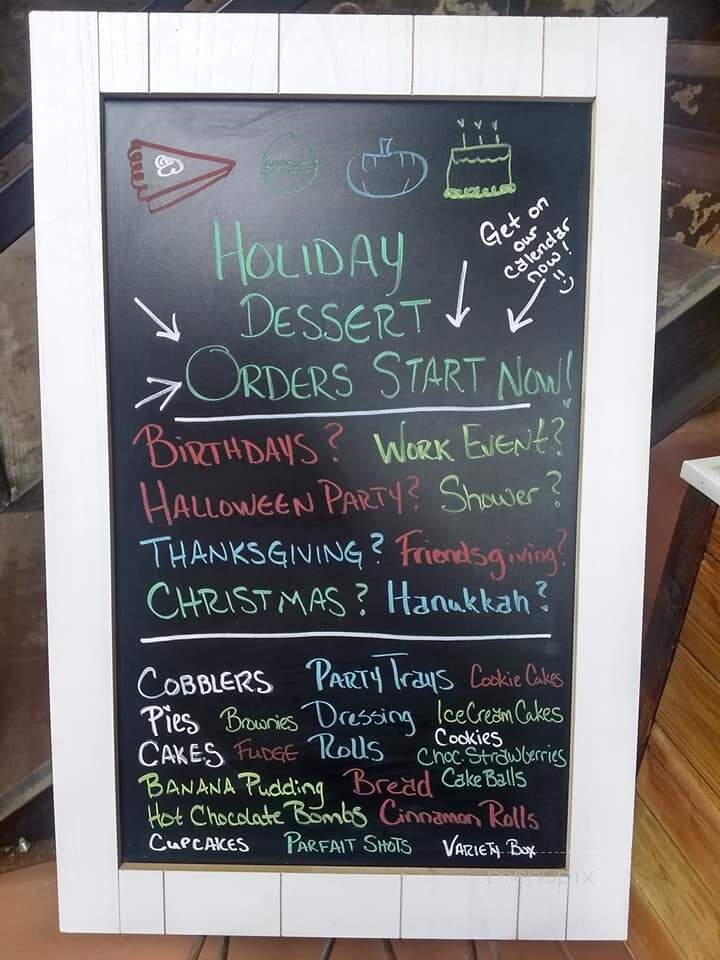 Get on
our
calendar
now!
HOLIDAY
DESSERT
ORDERS START NOW!
BIRTHDAYS? WORK EVENT?
HALLOWEEN PARTY? Shower?
THANKSGIVING? Friendsgiving?
CHRISTMAS? Hanukkah?
COBBLERS PARTY Trays Cookie Cakes
Pies Brownies Dressing Ice Cream Cakes
CAKES FUDGE Rolls Cookies
Choc. Strawberries
BANANA Pudding Bread Cake Balls
Hot Chocolate Bombs Cinnamon Rolls
CUPCAKES PARFAIT SHOTS VARIETY Box
menupix